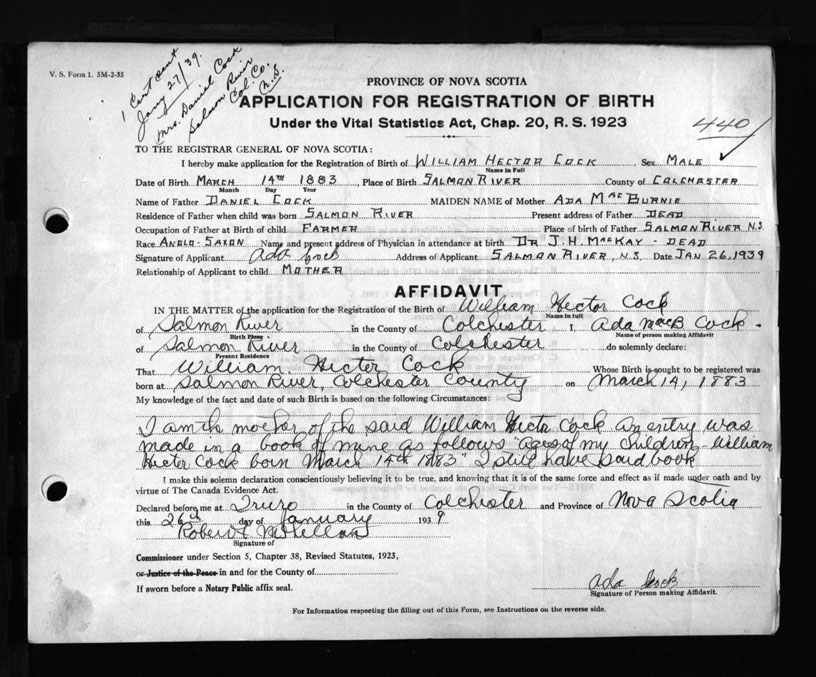 V. S. Form 1. 5M-2-35
1 Cert sent
Jany 27/39.
Mrs. Daniel Cock
Salmon River
Col. Co.
N.S.
PROVINCE OF NOVA SCOTIA
APPLICATION FOR REGISTRATION OF BIRTH
Under the Vital Statistics Act, Chap. 20, R. S. 1923
440
TO THE REGISTRAR GENERAL OF NOVA SCOTIA:
I hereby make application for the Registration of Birth of WILLIAM HECTOR COCK Sex MALE ✓
Name in Full
Date of Birth MARCH 14TH 1883, Place of Birth SALMON RIVER County of COLCHESTER
Month Day Year
Name of Father DANIEL COCK MAIDEN NAME of Mother ADA MACBURNIE
Residence of Father when child was born SALMON RIVER Present address of Father DEAD
Occupation of Father at Birth of child FARMER Place of birth of Father SALMON RIVER N.S.
Race ANGLO-SAXON Name and present address of Physician in attendance at birth DR J. H. MACKAY - DEAD
Signature of Applicant Ada Cock Address of Applicant SALMON RIVER, N.S. Date JAN 26, 1939
Relationship of Applicant to child MOTHER
AFFIDAVIT
IN THE MATTER of the application for the Registration of the Birth of William Hector Cock
Name in full
of Salmon River in the County of Colchester I, Ada MacB Cock.
Birth Place Name of person making Affidavit
of Salmon River in the County of Colchester do solemnly declare:
Present Residence
That William Hector Cock Whose Birth is sought to be registered was
born at Salmon River, Colchester County on March 14, 1883
My knowledge of the fact and date of such Birth is based on the following Circumstances:
I am the mother of the said William Hector Cock An entry was
made in a book of mine as follows "ages of my children - William
Hector Cock born March 14th 1883" I still have said book
I make this solemn declaration conscientiously believing it to be true, and knowing that it is of the same force and effect as if made under oath and by
virtue of The Canada Evidence Act.
Declared before me at Truro in the County of Colchester and Province of Nova Scotia
this 26th day of January 1939
Robert McLellan
Signature of
Commissioner under Section 5, Chapter 38, Revised Statutes, 1923,
or Justice of the Peace in and for the County of
If sworn before a Notary Public affix seal.
Ada Cock
Signature of Person making Affidavit.
For Information respecting the filling out of this Form, see Instructions on the reverse side.